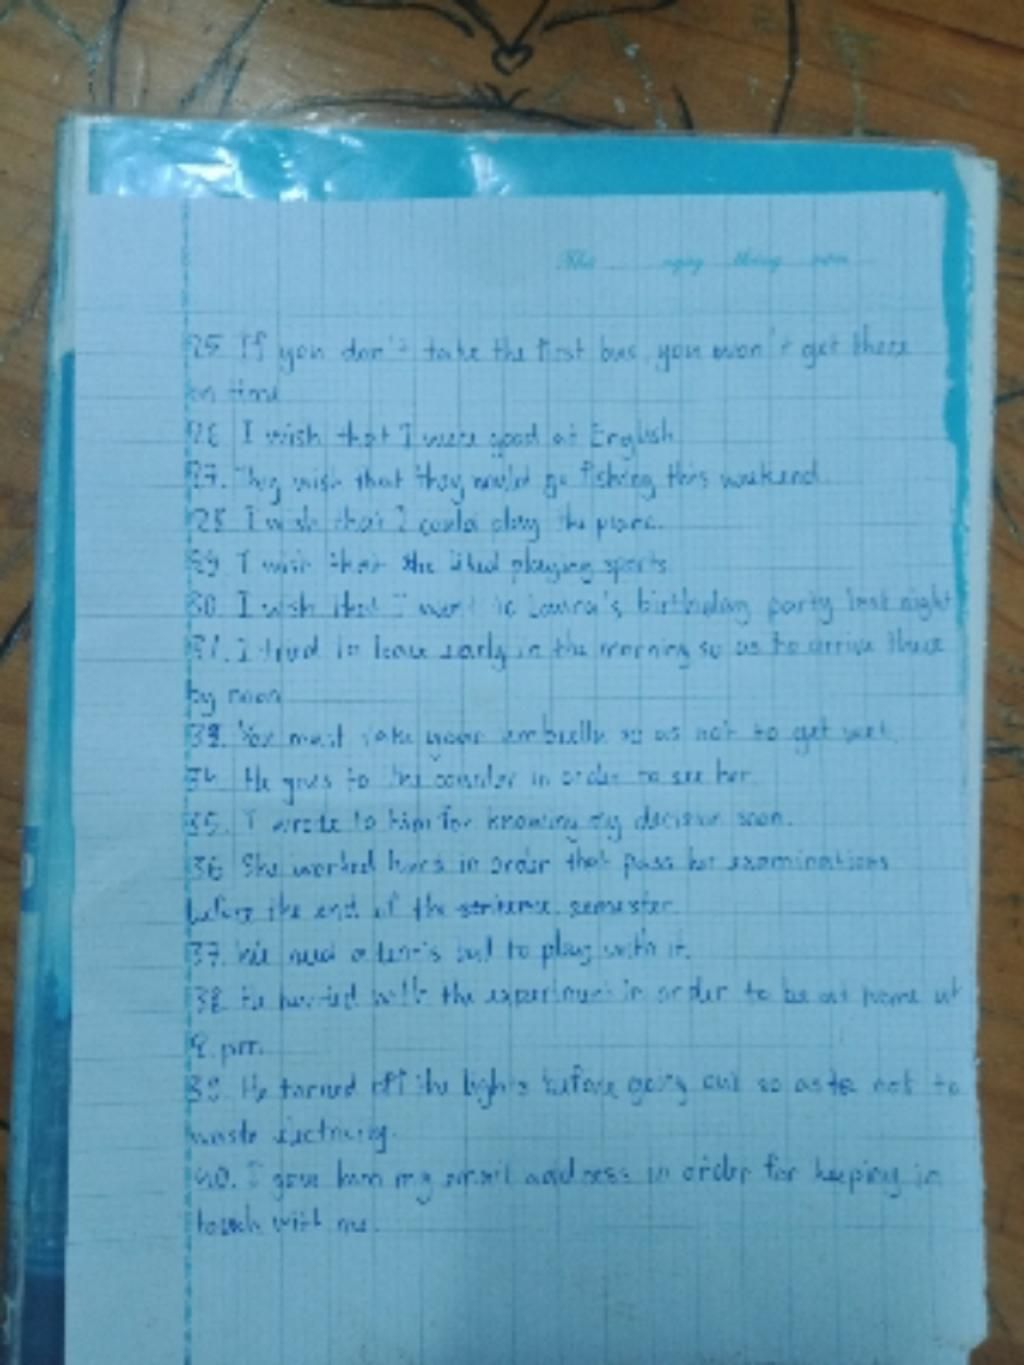 Thứ ngày tháng năm
25. If you don't take the first bus, you won't get there
on time
26. I wish that I were good at English
27. They wish that they would go fishing this weekend.
28. I wish that I could play the piano.
29. I wish that she liked playing sports
30. I wish that I went to Laura's birthday party last night
31. I tried to leave early in the morning so as to arrive there
by noon
33. You must take your umbrella so as not to get wet.
34. He goes to the counter in order to see her.
35. I wrote to him for knowing my decision soon.
36 She worked hard in order that pass her examinations
before the end of the semester.
37. We need a tennis ball to play with it.
38. He hurried with the experiment in order to be at home at
pm.
39. He turned off the lights before going out so as to not to
waste electricity.
40. I gave him my email address in order for keeping in
touch with me.